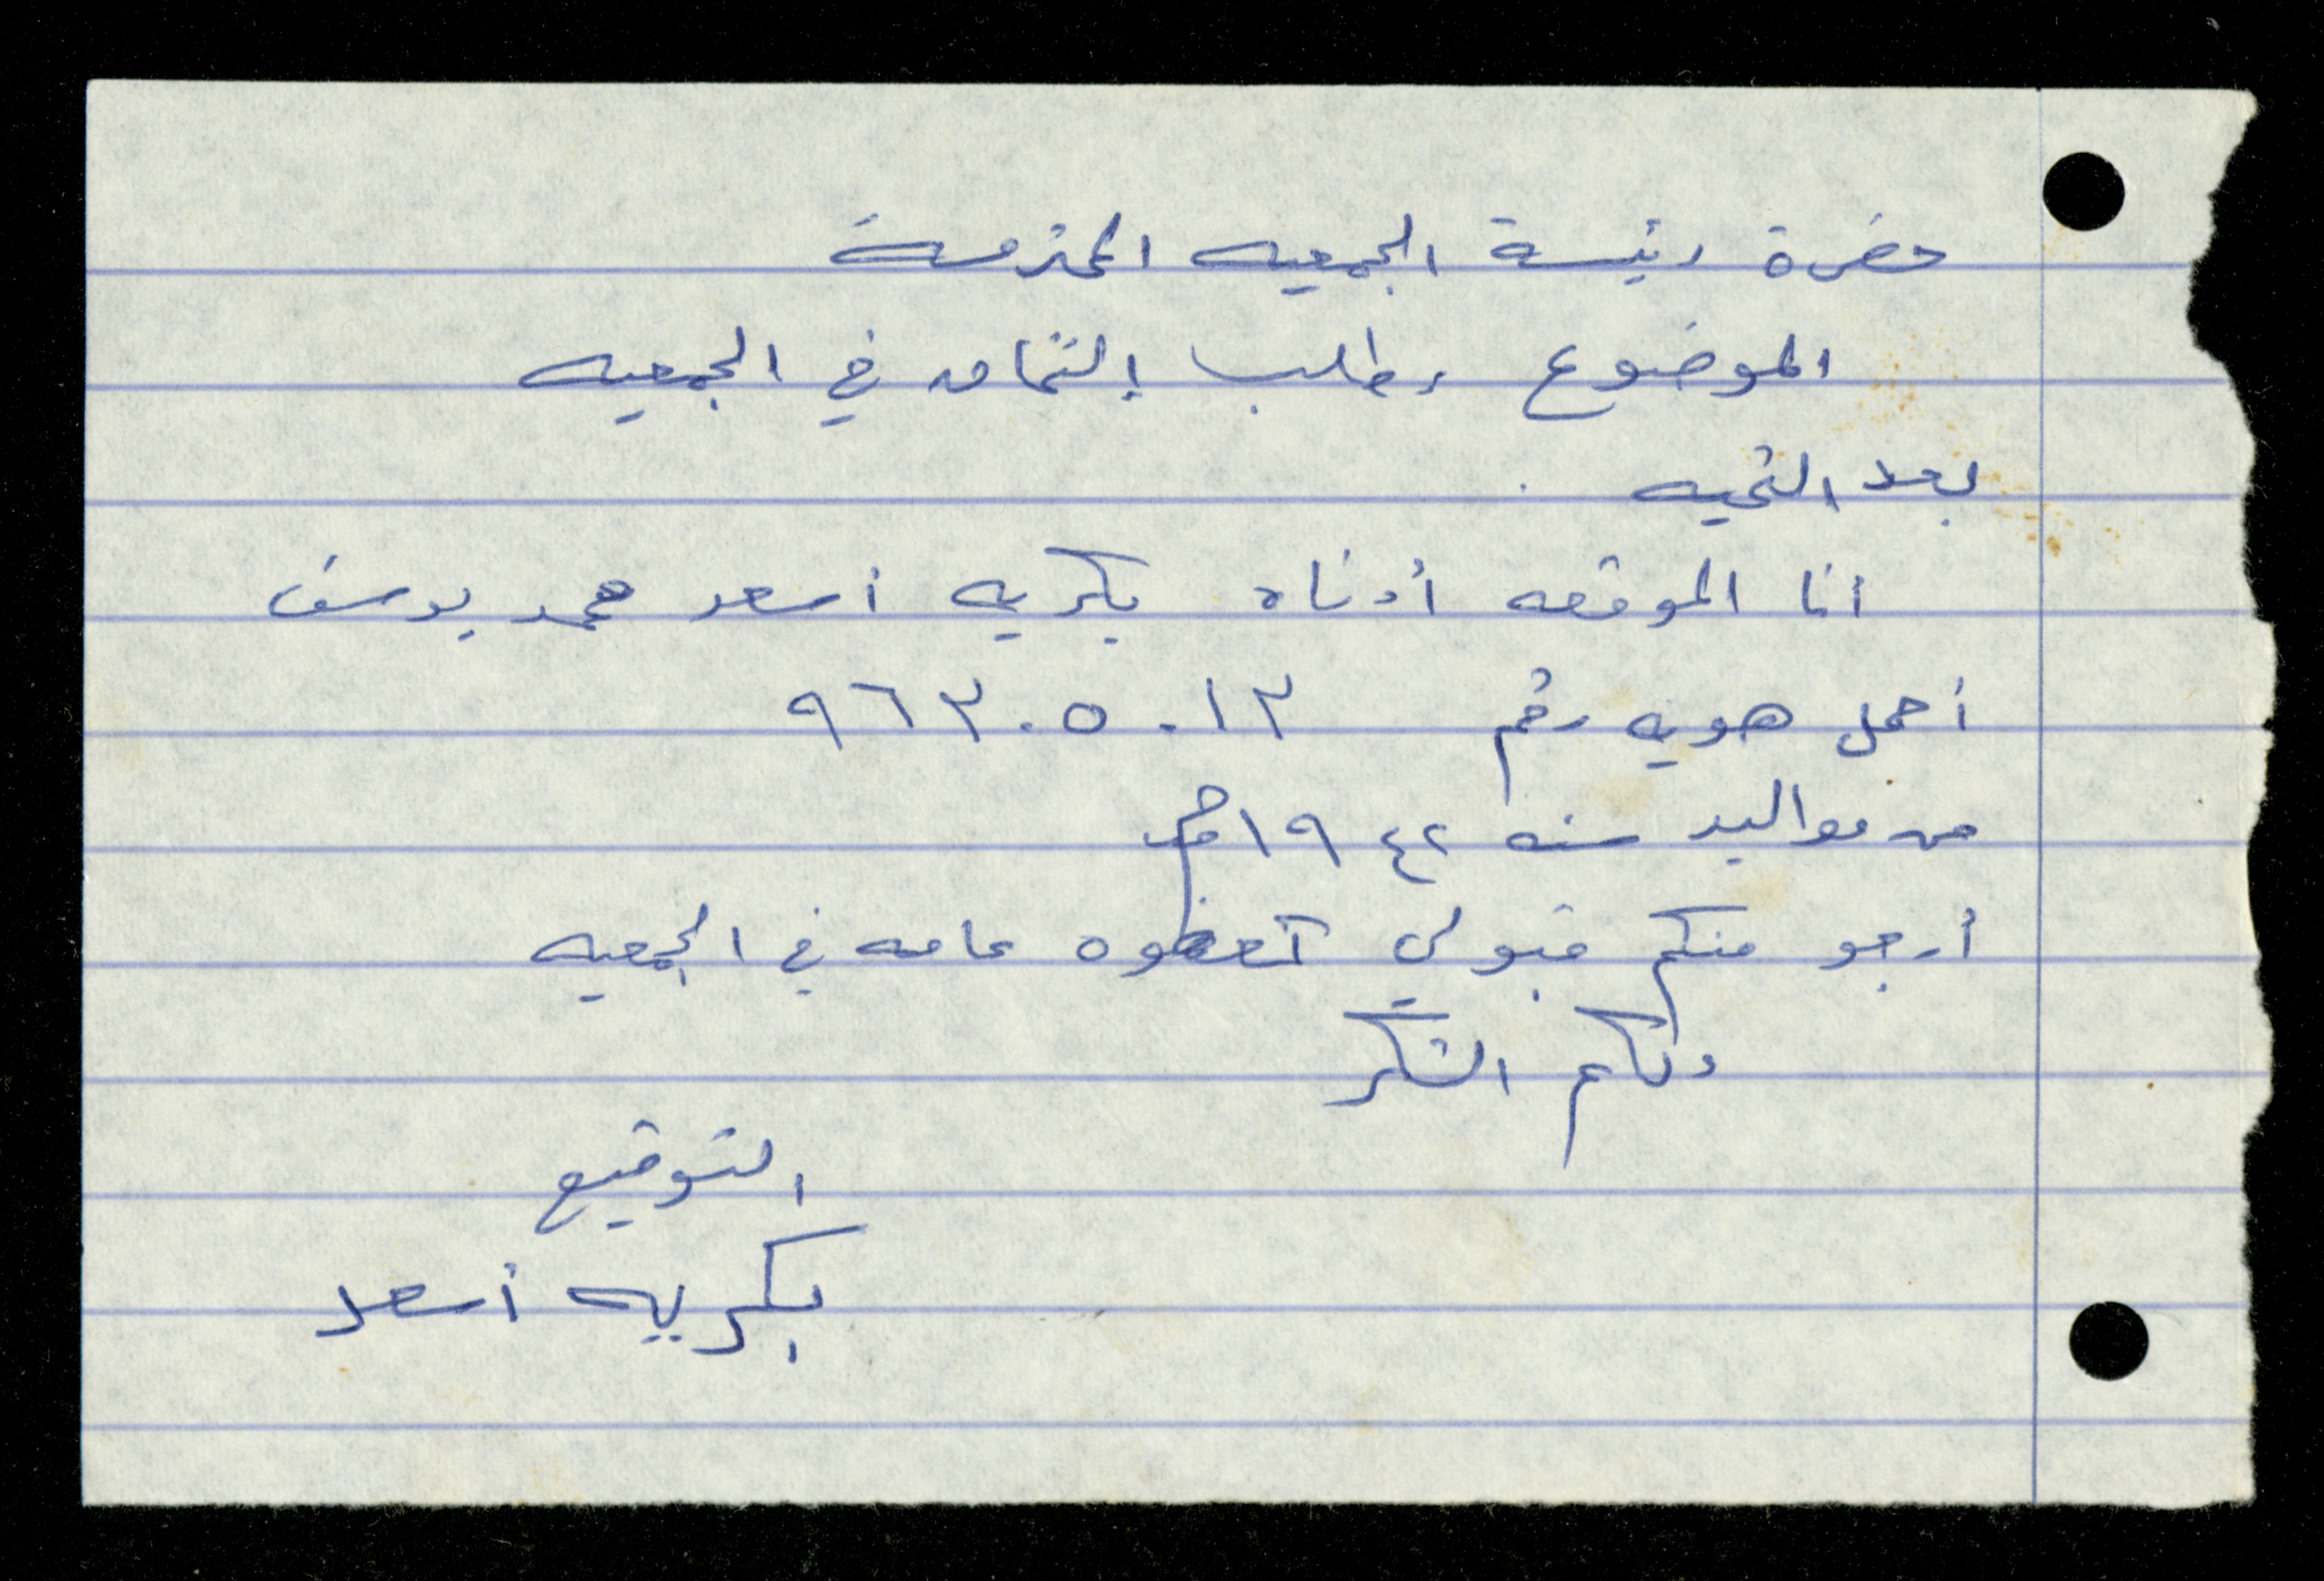 حضرة رئيسة الجمعيه المحترمة
الموضوع ، طلب إلتحاق في الجمعيه
بعد التحيه
أنا الموقعه أدناه بكريه أسعد محمد يوسف
أحمل هويه رقم ٩٦٣٠٥٠١٣
من مواليد سنه ١٩٤٢م
أرجو منكم قبولي كعضوه عامه في الجمعيه
ولكم الشكر
التوقيع
بكريه أسعد